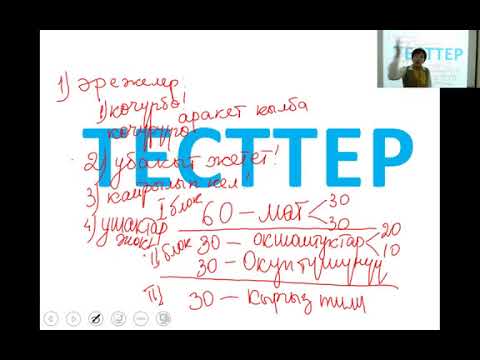 ТЕСТТЕР
1) эрежелер:
1) көчүрбө!
көчүрүүгө аракет кылба
ТЕСТТЕР
2) убакыт жетет!
3) кайрылып кел!
4) ушактар жок!
I блок 60 – мат < 30
30
II) блок 30 – окшоштуктар < 20
10
30 – Окуп түшүнүү
III) 30 – Кыргыз тили